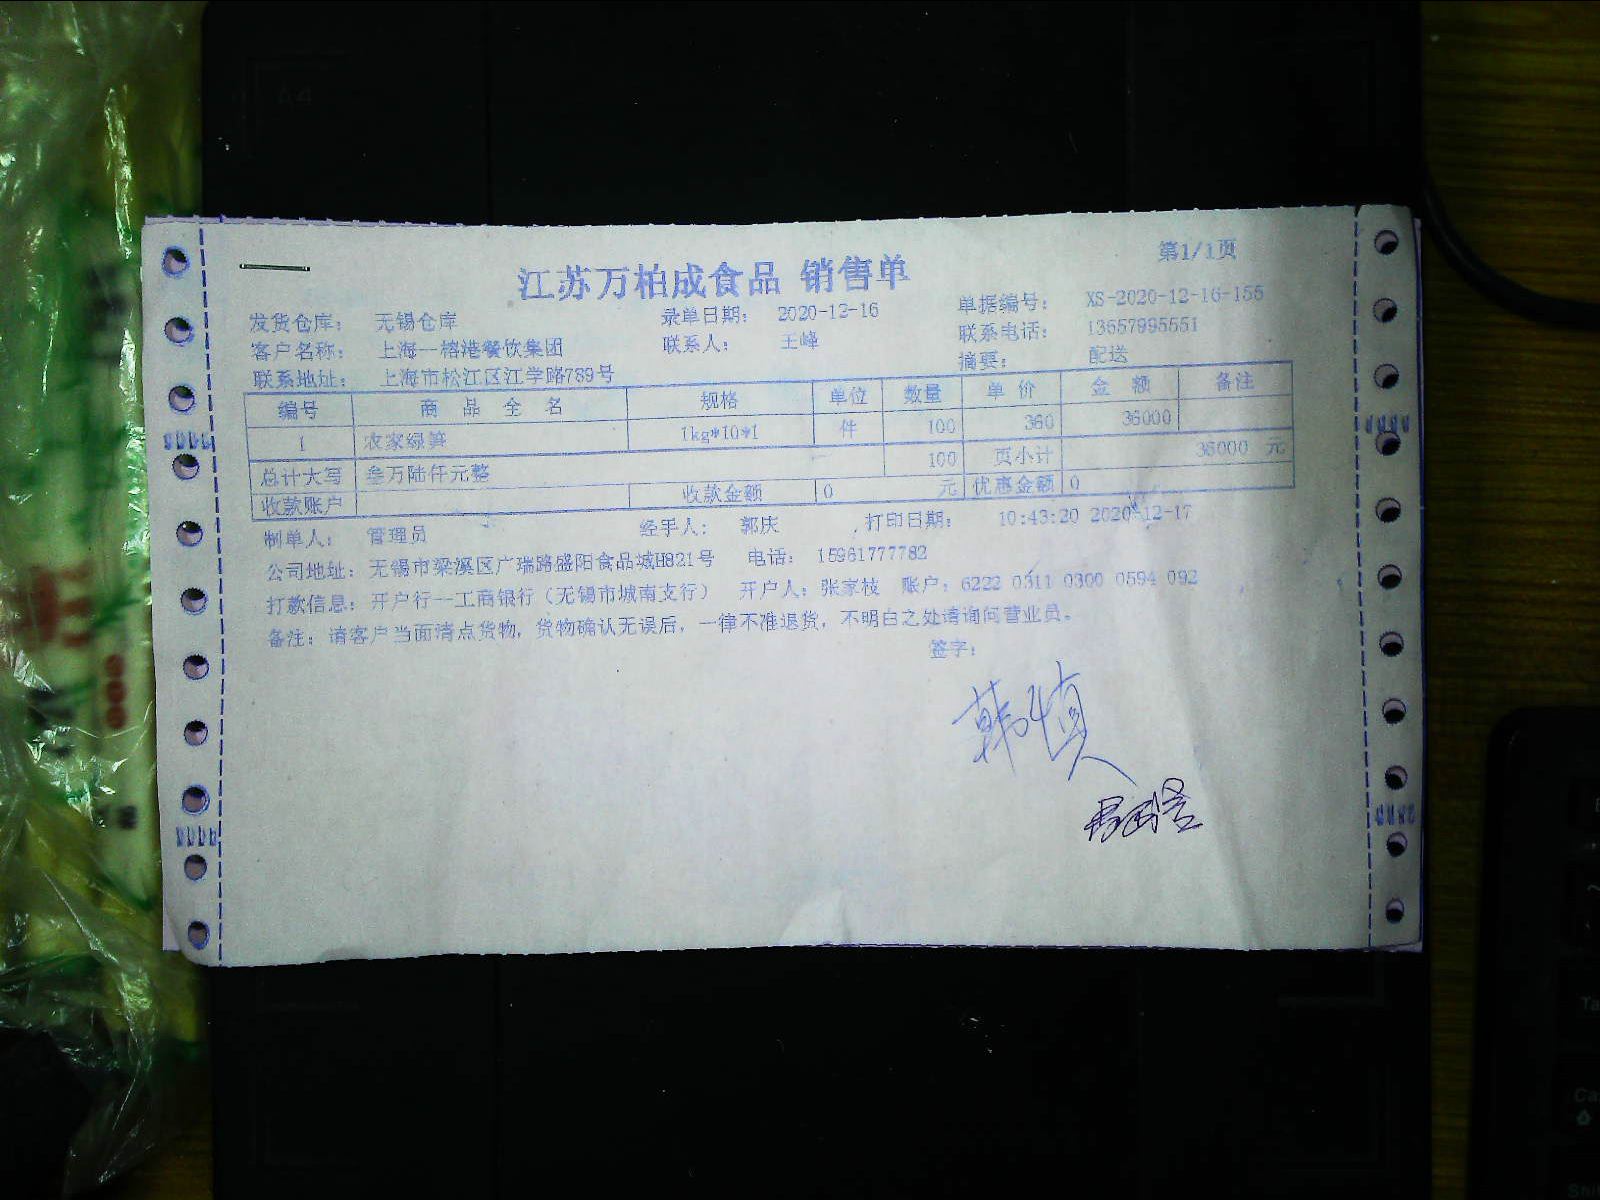 第1/1页
江苏万柏成食品 销售单
发货仓库: 无锡仓库 录单日期: 2020-12-16 单据编号: XS-2020-12-16-155
客户名称: 上海一榕港餐饮集团 联系人: 王峰 联系电话: 13657995551
联系地址: 上海市松江区江学路789号 摘要: 配送
编号 商 品 全 名 规格 单位 数量 单 价 金 额 备注
1 农家绿笋 1kg*10*1 件 100 360 36000
总计大写 叁万陆仟元整 100 页小计 36000 元
收款账户 收款金额 0 元 优惠金额 0
制单人: 管理员 经手人: 郭庆 打印日期: 10:43:20 2020-12-17
公司地址: 无锡市梁溪区广瑞路盛阳食品城H821号 电话: 15961777782
打款信息: 开户行--工商银行（无锡市城南支行） 开户人: 张家枝 账户: 6222 0311 0300 0594 092
备注: 请客户当面清点货物, 货物确认无误后, 一律不准退货, 不明白之处请询问营业员。
签字:
韩慎